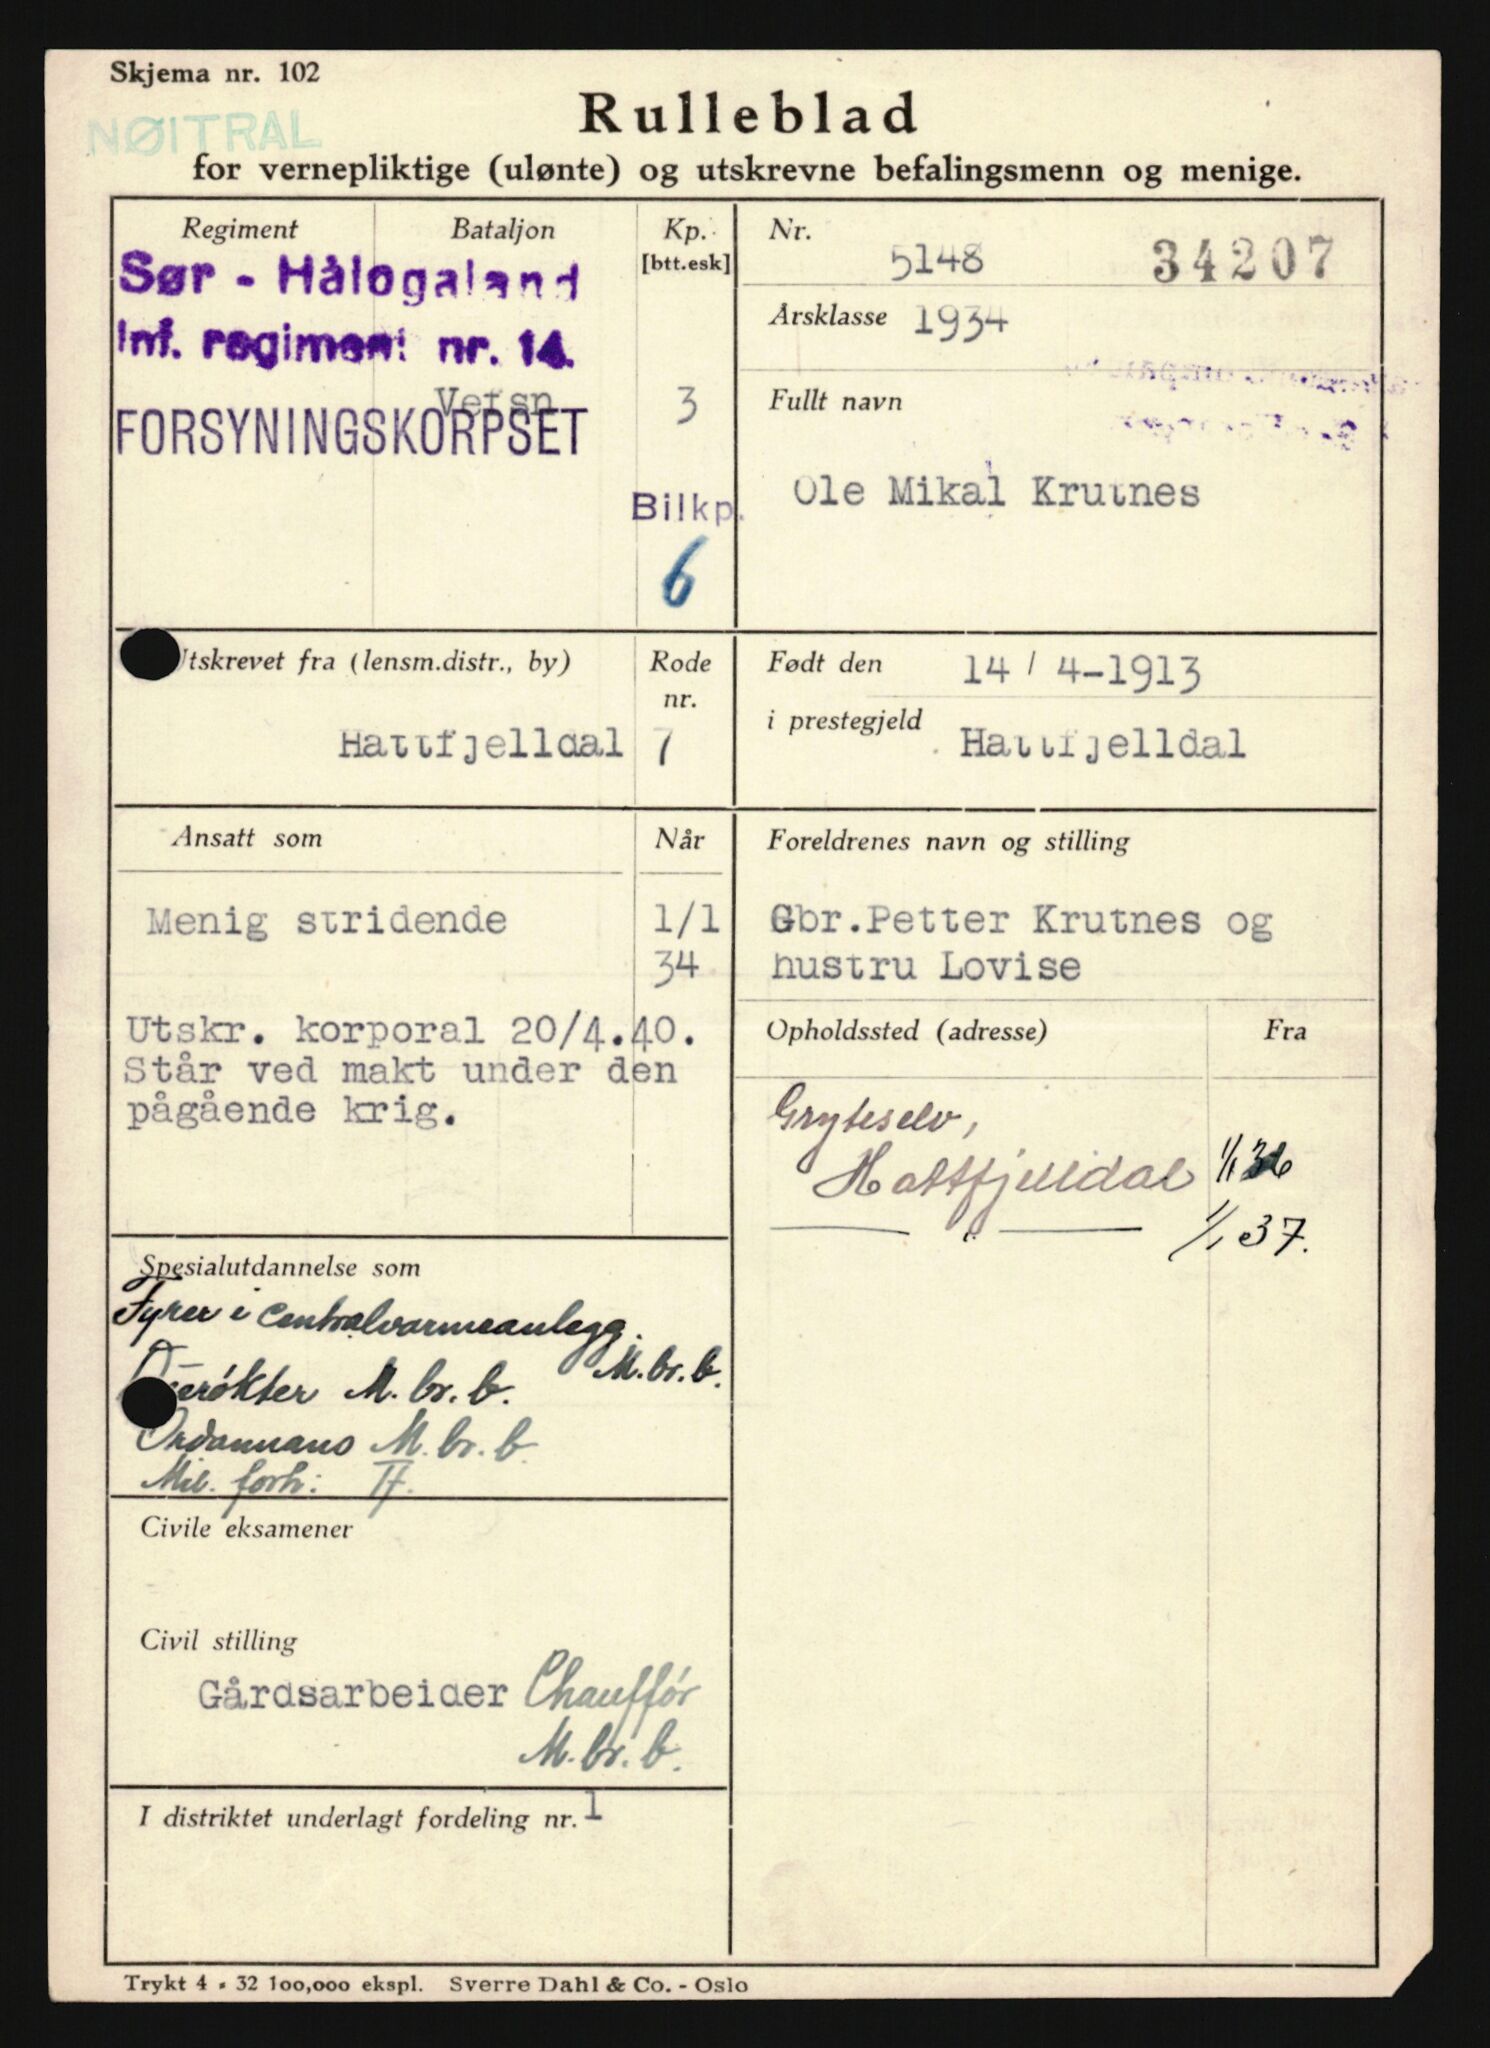 Skjema nr. 102
NØITRAL
Rulleblad
for vernepliktige (ulønte) og utskrevne befalingsmenn og menige.
Regiment
Bataljon
Kp.
[btt.esk]
Sør - Hålogaland
Inf. regiment nr. 14.
Vefsn
3
FORSYNINGSKORPSET
Bilkp.
6
Nr.
5148
34207
Årsklasse 1934
Fullt navn
Ole Mikal Krutnes
Utskrevet fra (lensm.distr., by)
Rode
nr.
Hattfjelldal
7
Født den
14 / 4-1913
i prestegjeld
Hattfjelldal
Ansatt som
Når
Menig stridende
1/1
34
Utskr. korporal 20/4.40.
Står ved makt under den
pågående krig.
Foreldrenes navn og stilling
Gbr.Petter Krutnes og
hustru Lovise
Opholdssted (adresse)
Fra
Gryteselv,
Hattfjelldal 1/1 36
1/1 37.
Spesialutdannelse som
Fyrer i centralvarmeanlegg.
M.br.b.
M.br.b.
Ordonnans M.br.b.
Mil. forh: II.
Civile eksamener
Civil stilling
Gårdsarbeider Chauffør
M.br.b.
I distriktet underlagt fordeling nr. 1
Trykt 4 - 32 100,000 ekspl. Sverre Dahl & Co. - Oslo